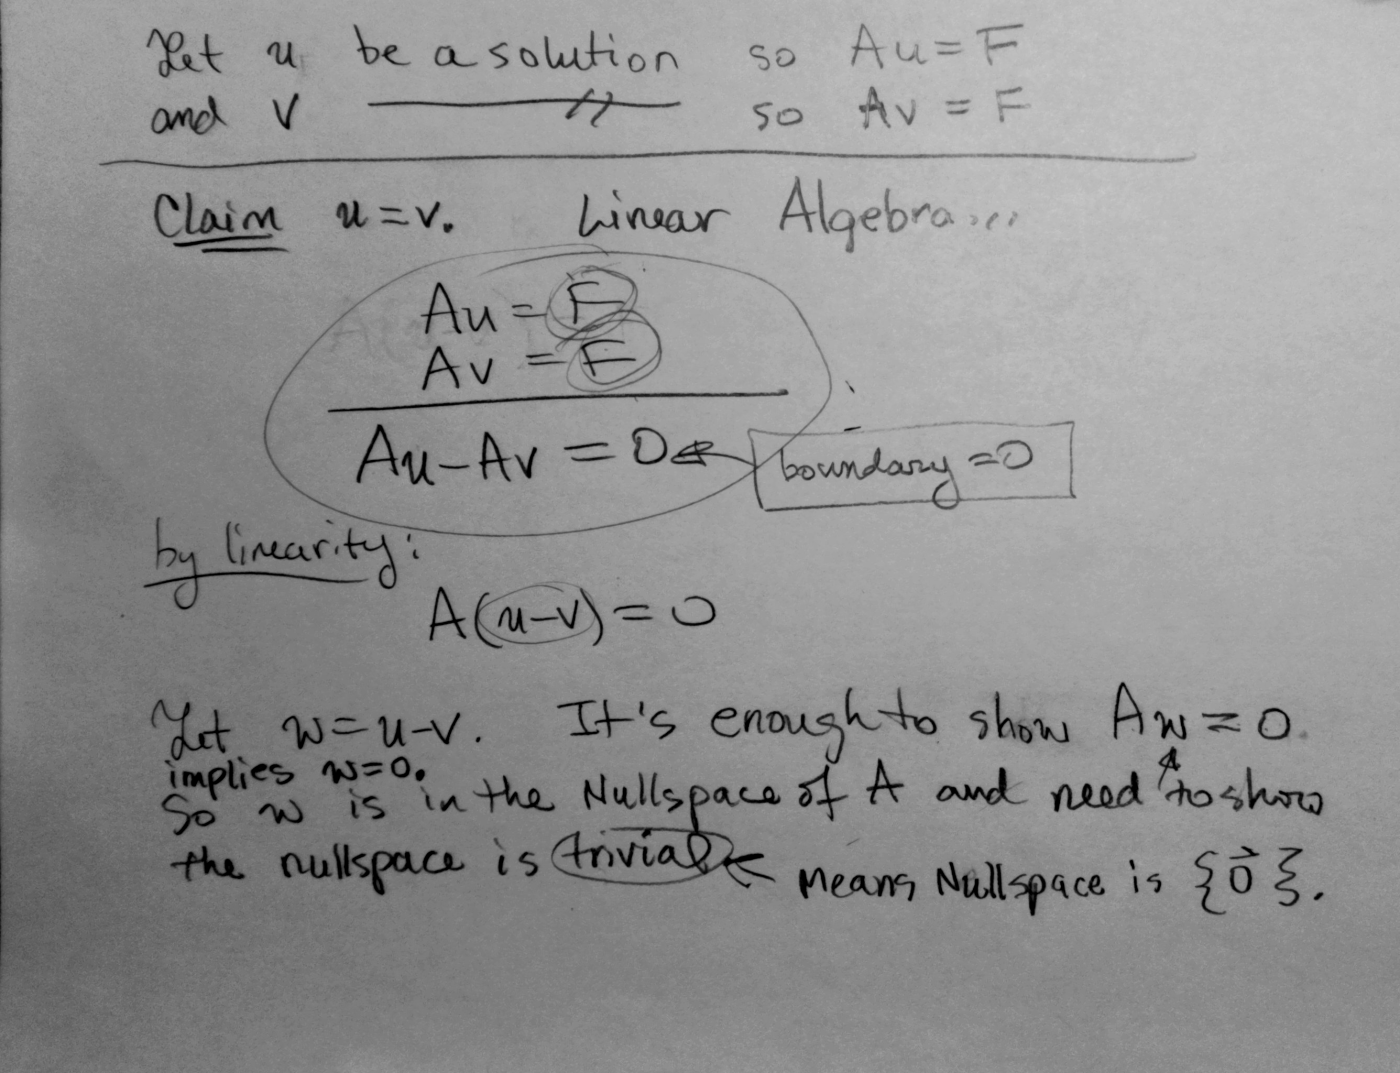 Let u be a solution so Au = F
and v —— // —— so Av = F
Claim u = v. Linear Algebra...
Au = F
Av = F
Au - Av = 0 ← boundary = 0
by linearity:
A(u-v) = 0
Let w = u-v. It's enough to show Aw = 0
implies w = 0.
So w is in the Nullspace of A and need to show
the nullspace is trivial ← means Nullspace is {0⃗}.